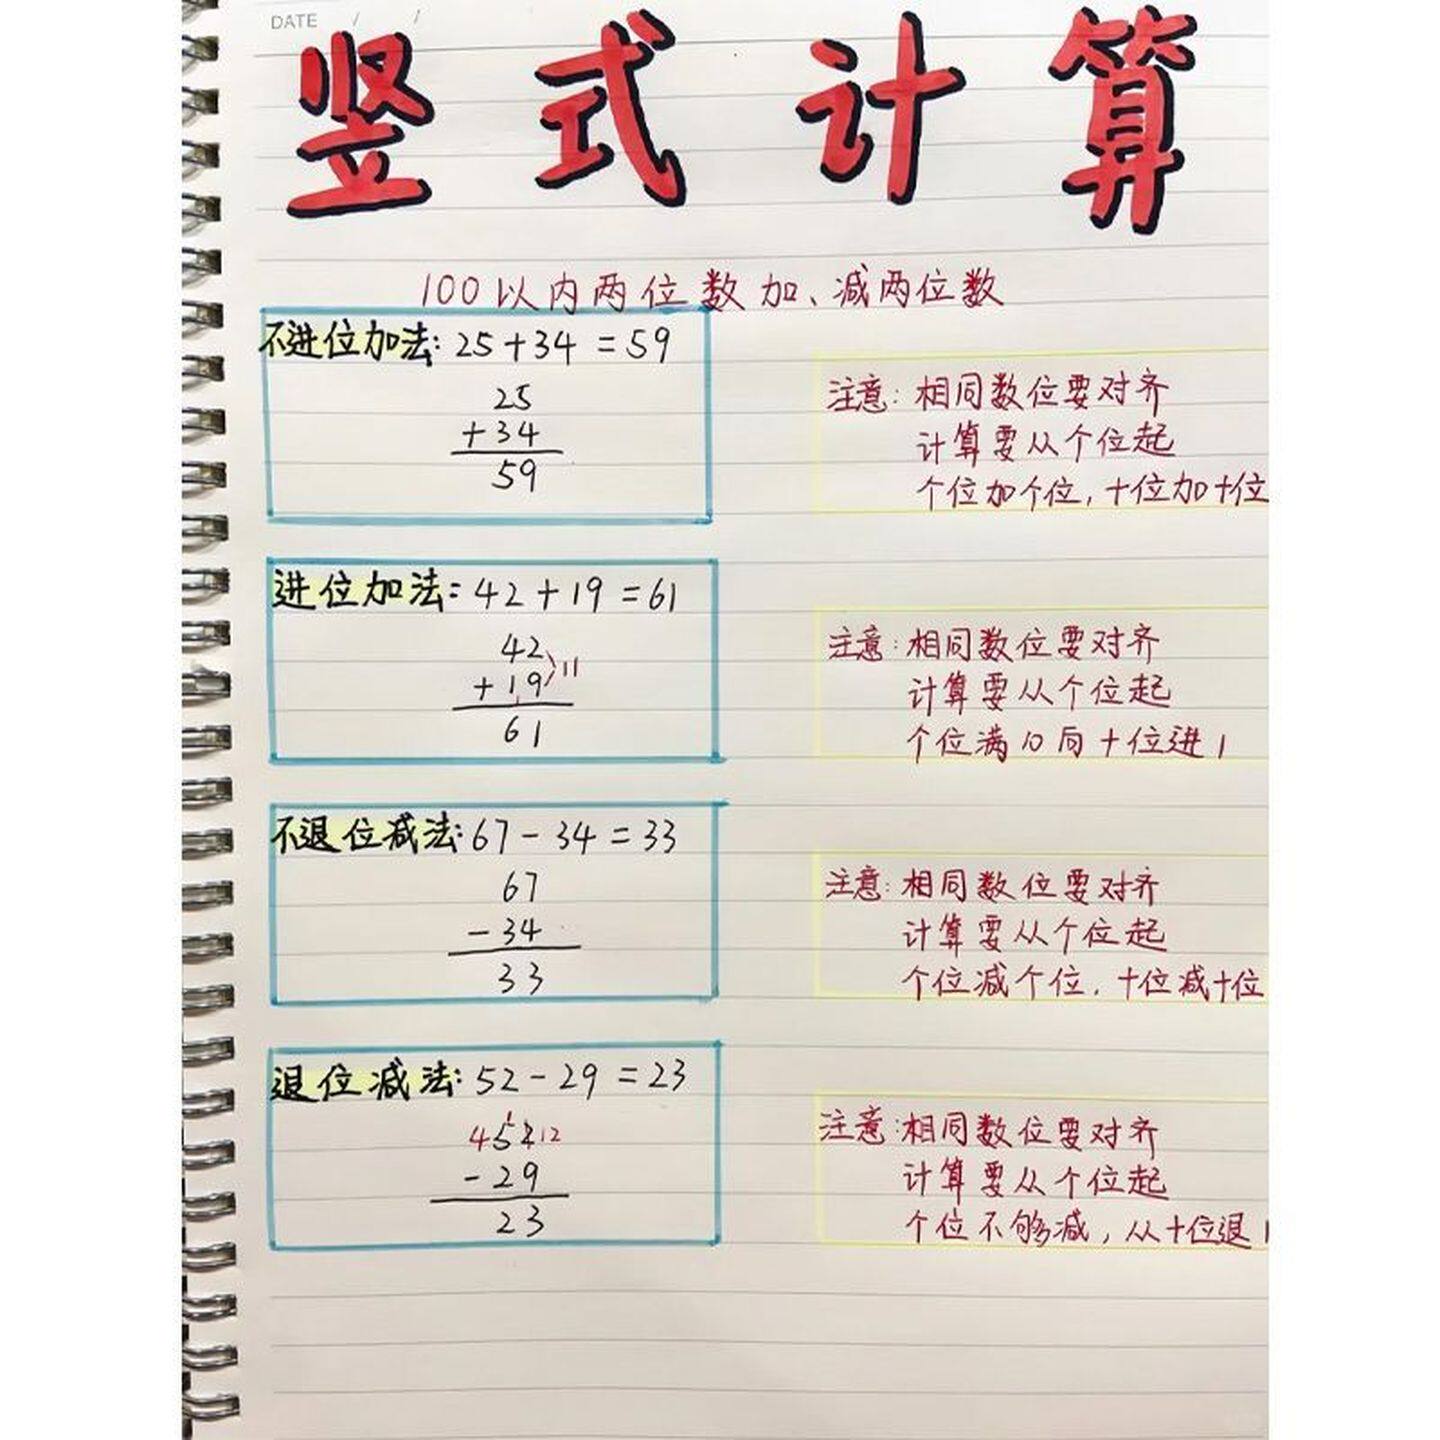 DATE / /
竖式计算
100以内两位数加、减两位数
不进位加法:25+34=59
25
+34
59
注意:相同数位要对齐
计算要从个位起
个位加个位,十位加十位
进位加法:42+19=61
42
+19 11
1
61
注意:相同数位要对齐
计算要从个位起
个位满10向十位进1
不退位减法:67-34=33
67
-34
33
注意:相同数位要对齐
计算要从个位起
个位减个位,十位减十位
退位减法:52-29=23
4 52 12
-29
23
注意:相同数位要对齐
计算要从个位起
个位不够减,从十位退1